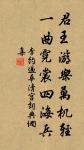 君王游樂萬機輕
一曲霓裳四海兵
李約過華清宮詞典網
集